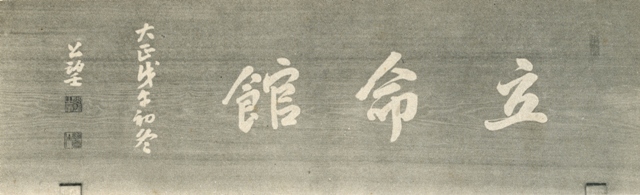 立命館
大正戊午初冬
公望